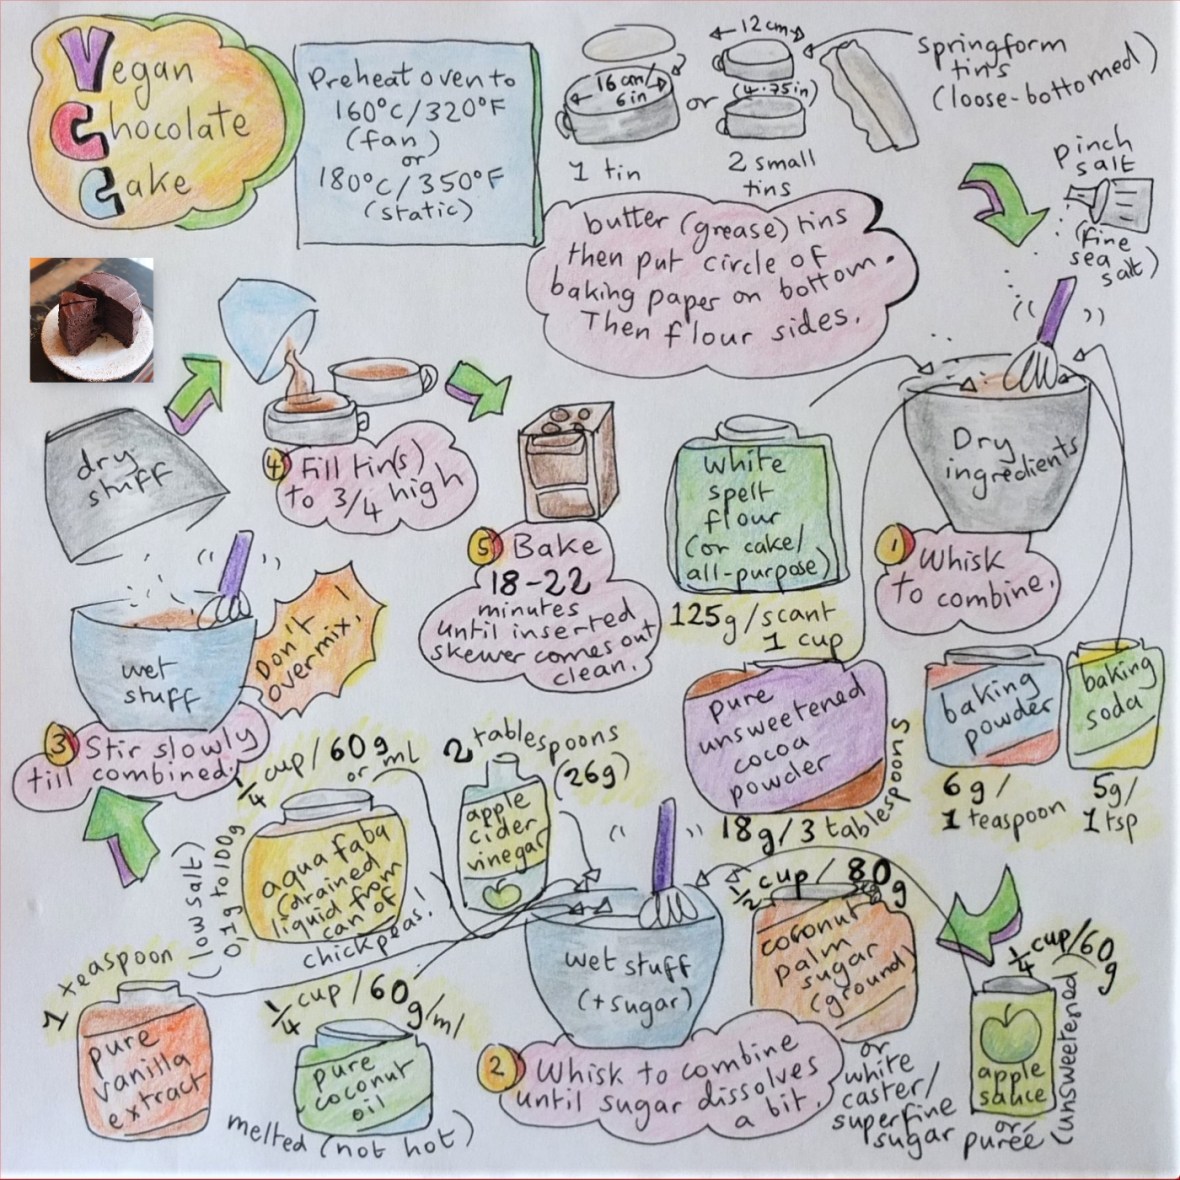 Vegan
Chocolate
Cake
Preheat oven to
160°C/320°F
(fan)
or
180°C/350°F
(static)
16 cm/
6 in
1 tin
or
12 cm
(4.75in)
2 small
tins
springform
tins
(loose-bottomed)
butter (grease) tins
then put circle of
baking paper on bottom.
Then flour sides.
pinch
salt
(fine
sea
salt)
Dry
ingredients
1 Whisk
to combine.
white
spelt
flour
(or cake/
all-purpose)
125g/scant
1 cup
pure
unsweetened
cocoa
powder
18g/3 tablespoons
baking
powder
6g/
1 teaspoon
baking
soda
5g/
1 tsp
wet stuff
(+sugar)
2 Whisk to combine
until sugar dissolves
a bit.
1/4 cup/60g
apple
sauce
or
purée
(unsweetened)
1/2 cup/80g
coconut
palm
sugar
(ground)
or
white
caster/
superfine
sugar
2 tablespoons
(26g)
apple
cider
vinegar
1/4 cup/60g
or ml
aqua faba
(drained
liquid from
can of
chickpeas!
(low salt)
0,1g to 100g
1/4 cup/60g/ml
pure
coconut
oil
melted (not hot)
1 teaspoon
pure
vanilla
extract
dry
stuff
wet
stuff
Don't
overmix!
3 Stir slowly
till combined.
4 Fill tin(s)
to 3/4 high
5 Bake
18-22
minutes
until inserted
skewer comes out
clean.